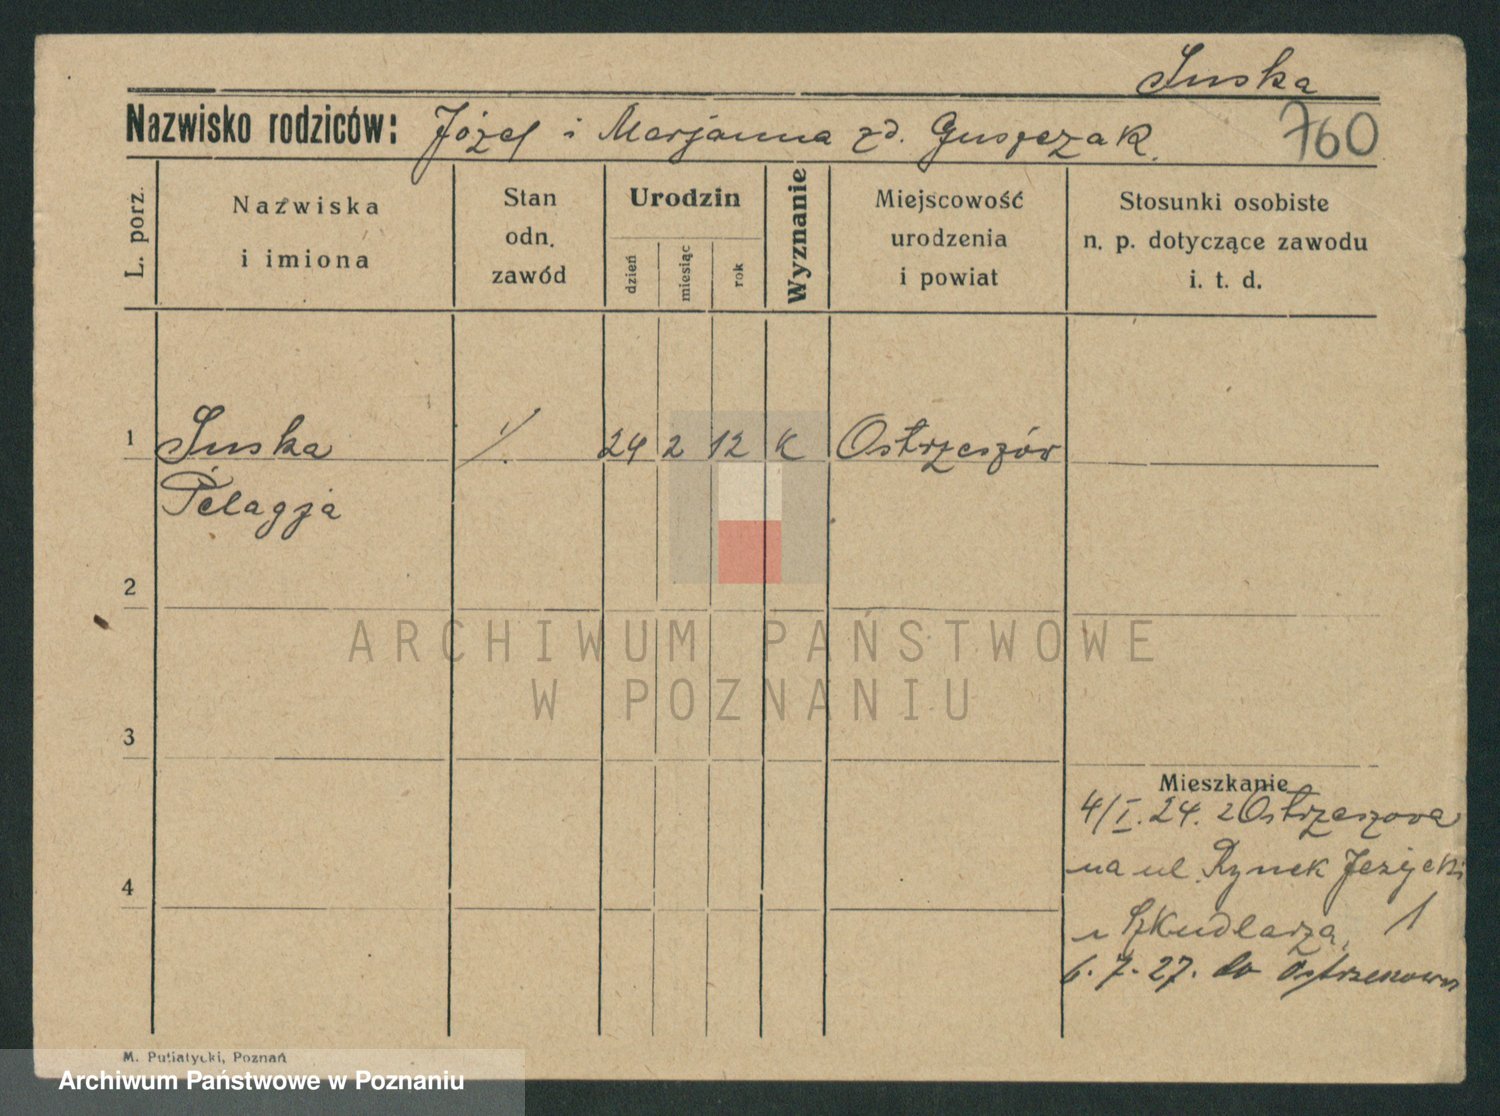 Suska
Nazwisko rodziców: Józef i Marjanna zd. Guszczak.
760
L. porz.
Nazwiska
i imiona
Stan
odn.
zawód
Urodzin
dzień
miesiąc
rok
Wyznanie
Miejscowość
urodzenia
i powiat
Stosunki osobiste
n. p. dotyczące zawodu
i. t. d.
1 Suska 24 2 12 K Ostrzeszów
Pelagja
2
3
4
ARCHIWUM PAŃSTWOWE
W POZNANIU
Mieszkanie
4/I. 24. z Ostrzeszowa
na ul. Rynek Jeżycki
u Szkudlarza, 1
6. 7. 27. do
M. Putiatycki, Poznań
Archiwum Państwowe w Poznaniu